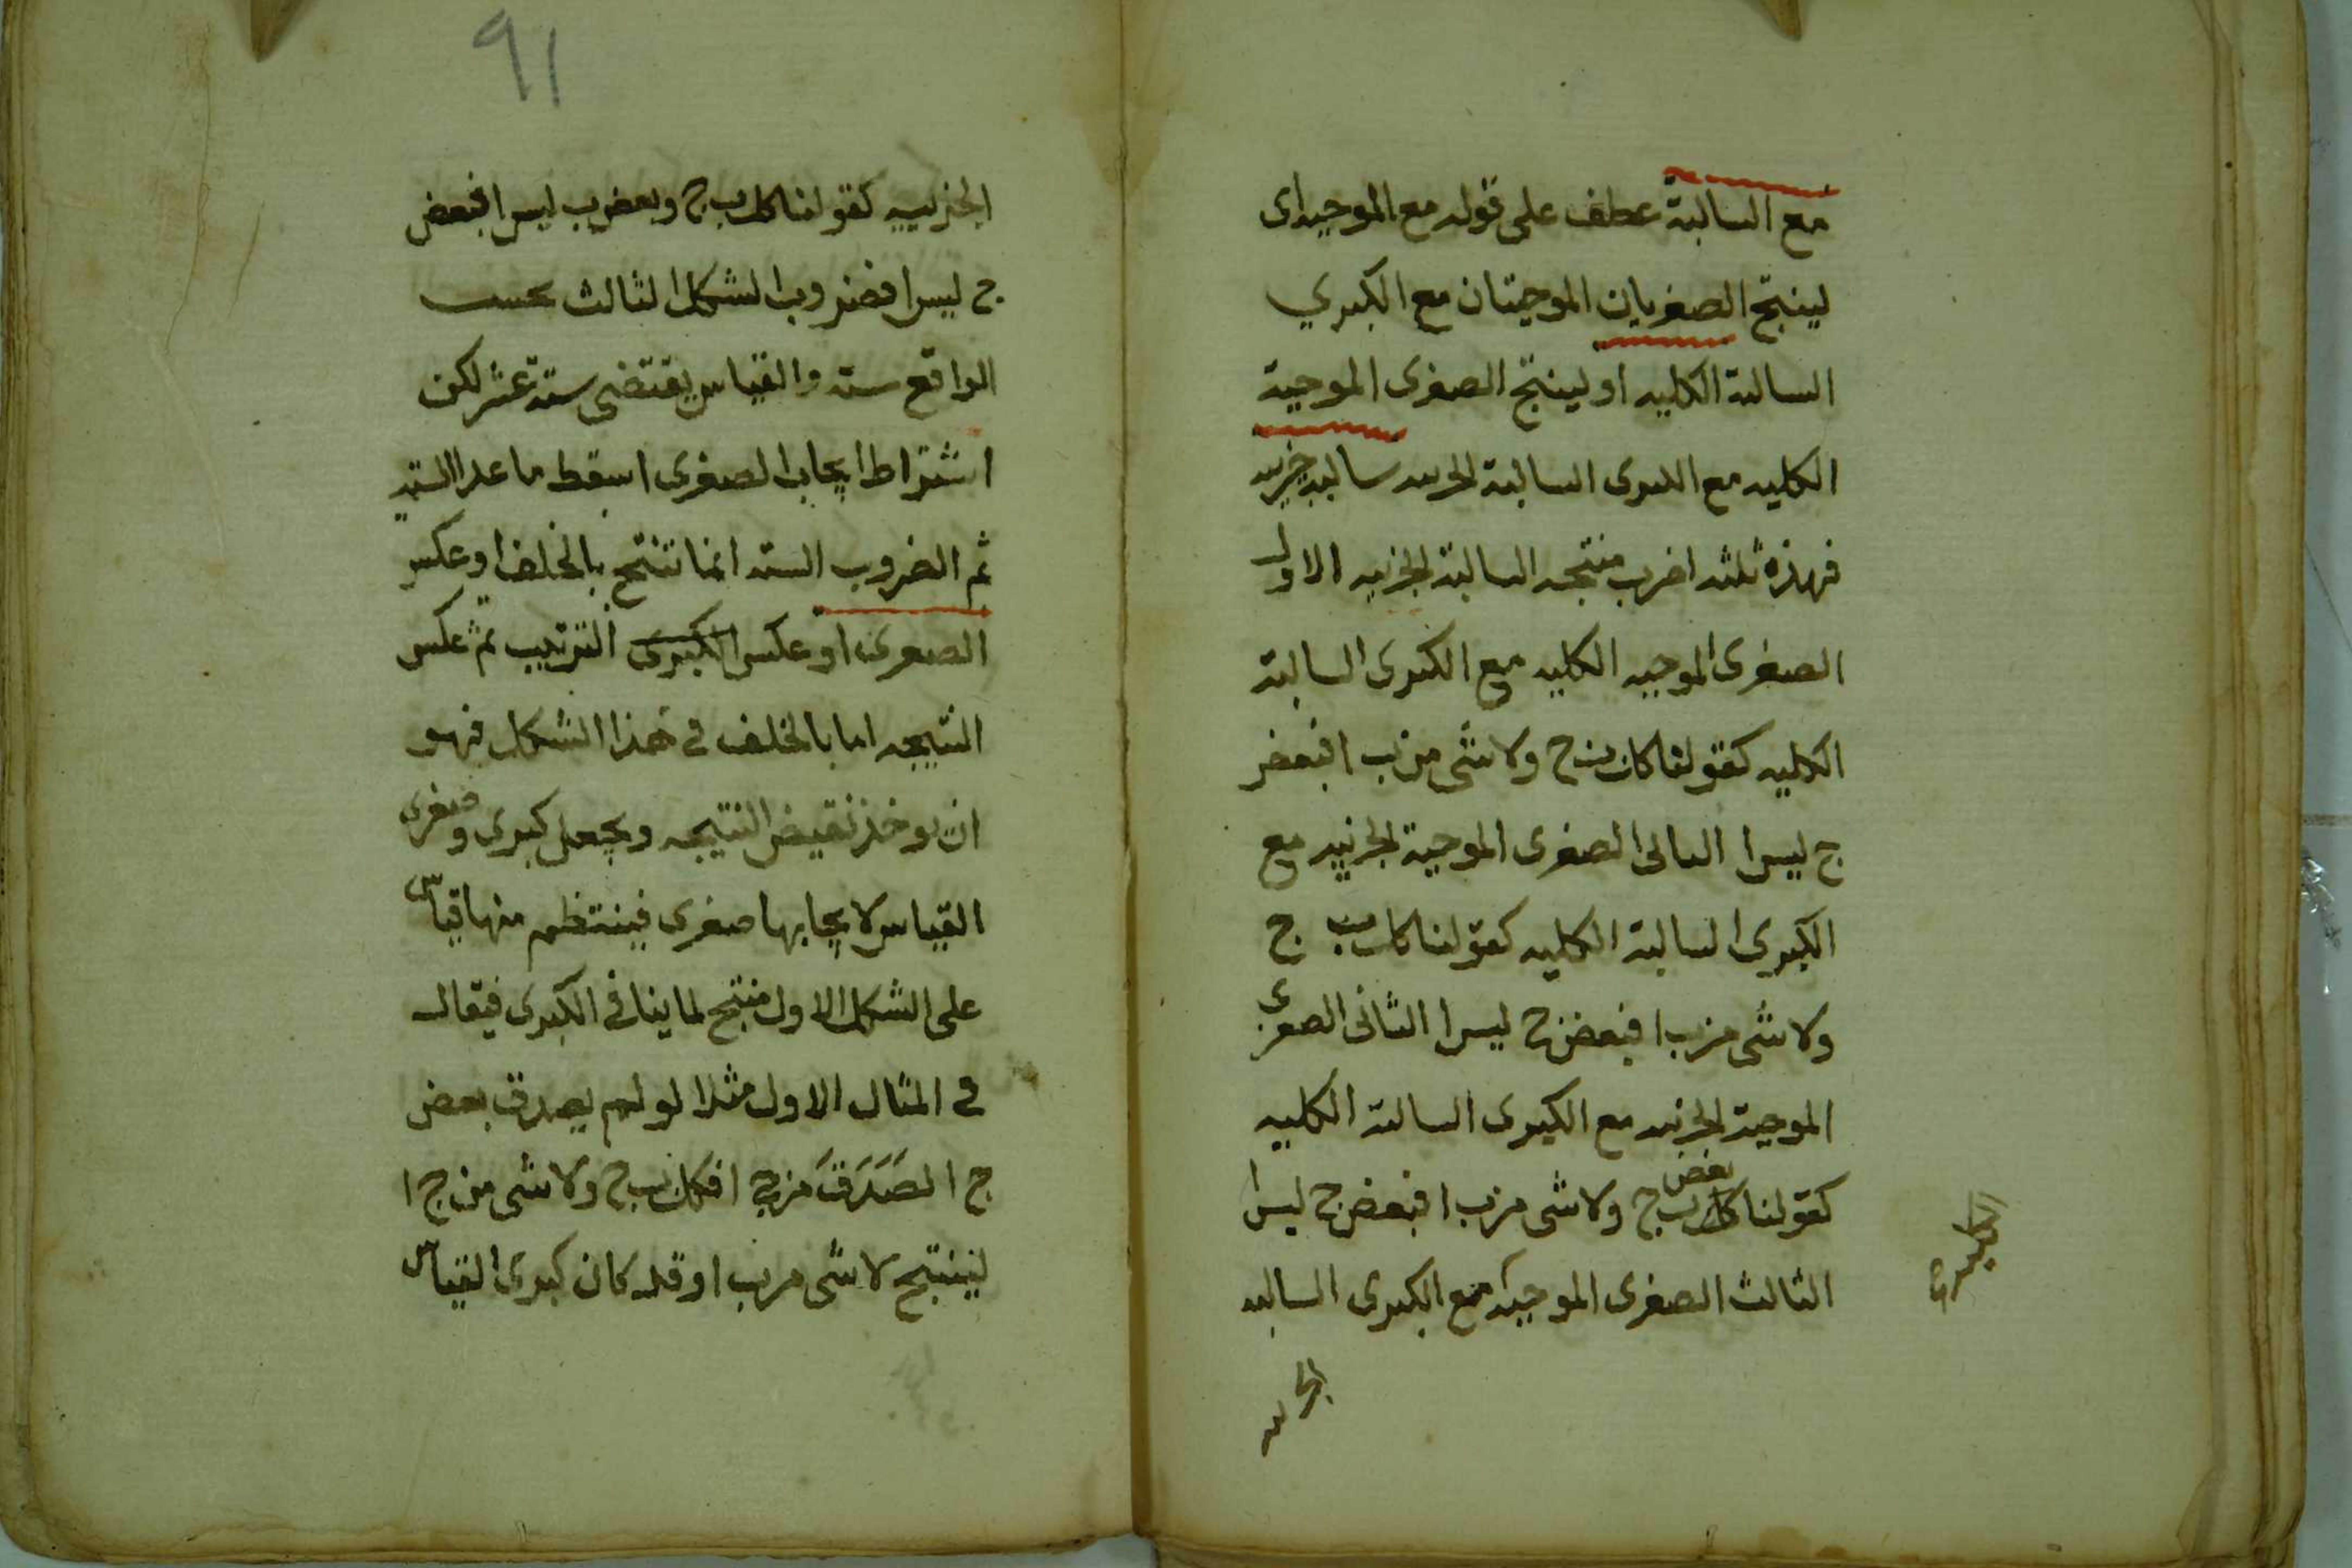 مع السالبة عطف على قوله مع الموجبه اى
لينتج الصغريان الموجبتان مع الكبري
السالبة الكليه او لينتج الصغرى الموجبة
الكليه مع الكبرى السالبة الجزئيه سالبه جزئيه
فهذه ثلثه اضرب منتجه السالبة الجزئيه الاول
الصغرى الموجبه الكليه مع الكبرى السالبة
الكليه كقولنا كل ب ج ولا شى من ب ا فبعض
ج ليس ا الثانى الصغرى الموجبة الجزئيه مع
الكبرى السالبة الكليه كقولنا كل ب ج
ولا شى من ب ا فبعض ج ليس ا الثانى الصغرى
الموجبة الجزئيه مع الكبرى السالبة الكليه
بعض
كقولنا كل ب ج ولا شى من ب ا فبعض ج ليس ا
الثالث الصغرى الموجبه مع الكبرى السالبه
الكليه
الجزئيه
٩١
الجزئييه كقولنا كل ب ج وبعض ب ليس ا فبعض
ج ليس ا فضروب الشكل الثالث بحسب
الواقع سته والقياس يقتضى ستة عشر لكن
اشتراط ايجاب الصغرى اسقط ما عدا الستة
ثم الضروب السته انما تنتج بالخلف او عكس
الصغرى او عكس الكبرى الترتيب ثم عكس
النتيجه اما بالخلف فى هذا الشكل فهو
ان يوخذ نقيض النتيجه ويجعل كبرى وصغرى
القياس لايجابها صغرى فينتظم منها قياس
على الشكل الاول منتج لما ينافى الكبرى فيقال
فى المثال الاول مثلا لو لم يصدق بعض
ج ا لصَدَقَ من ج ا فكل ب ج ولا شى من ج ا
لينتج لا شى من ب ا وقد كان كبرى القياس